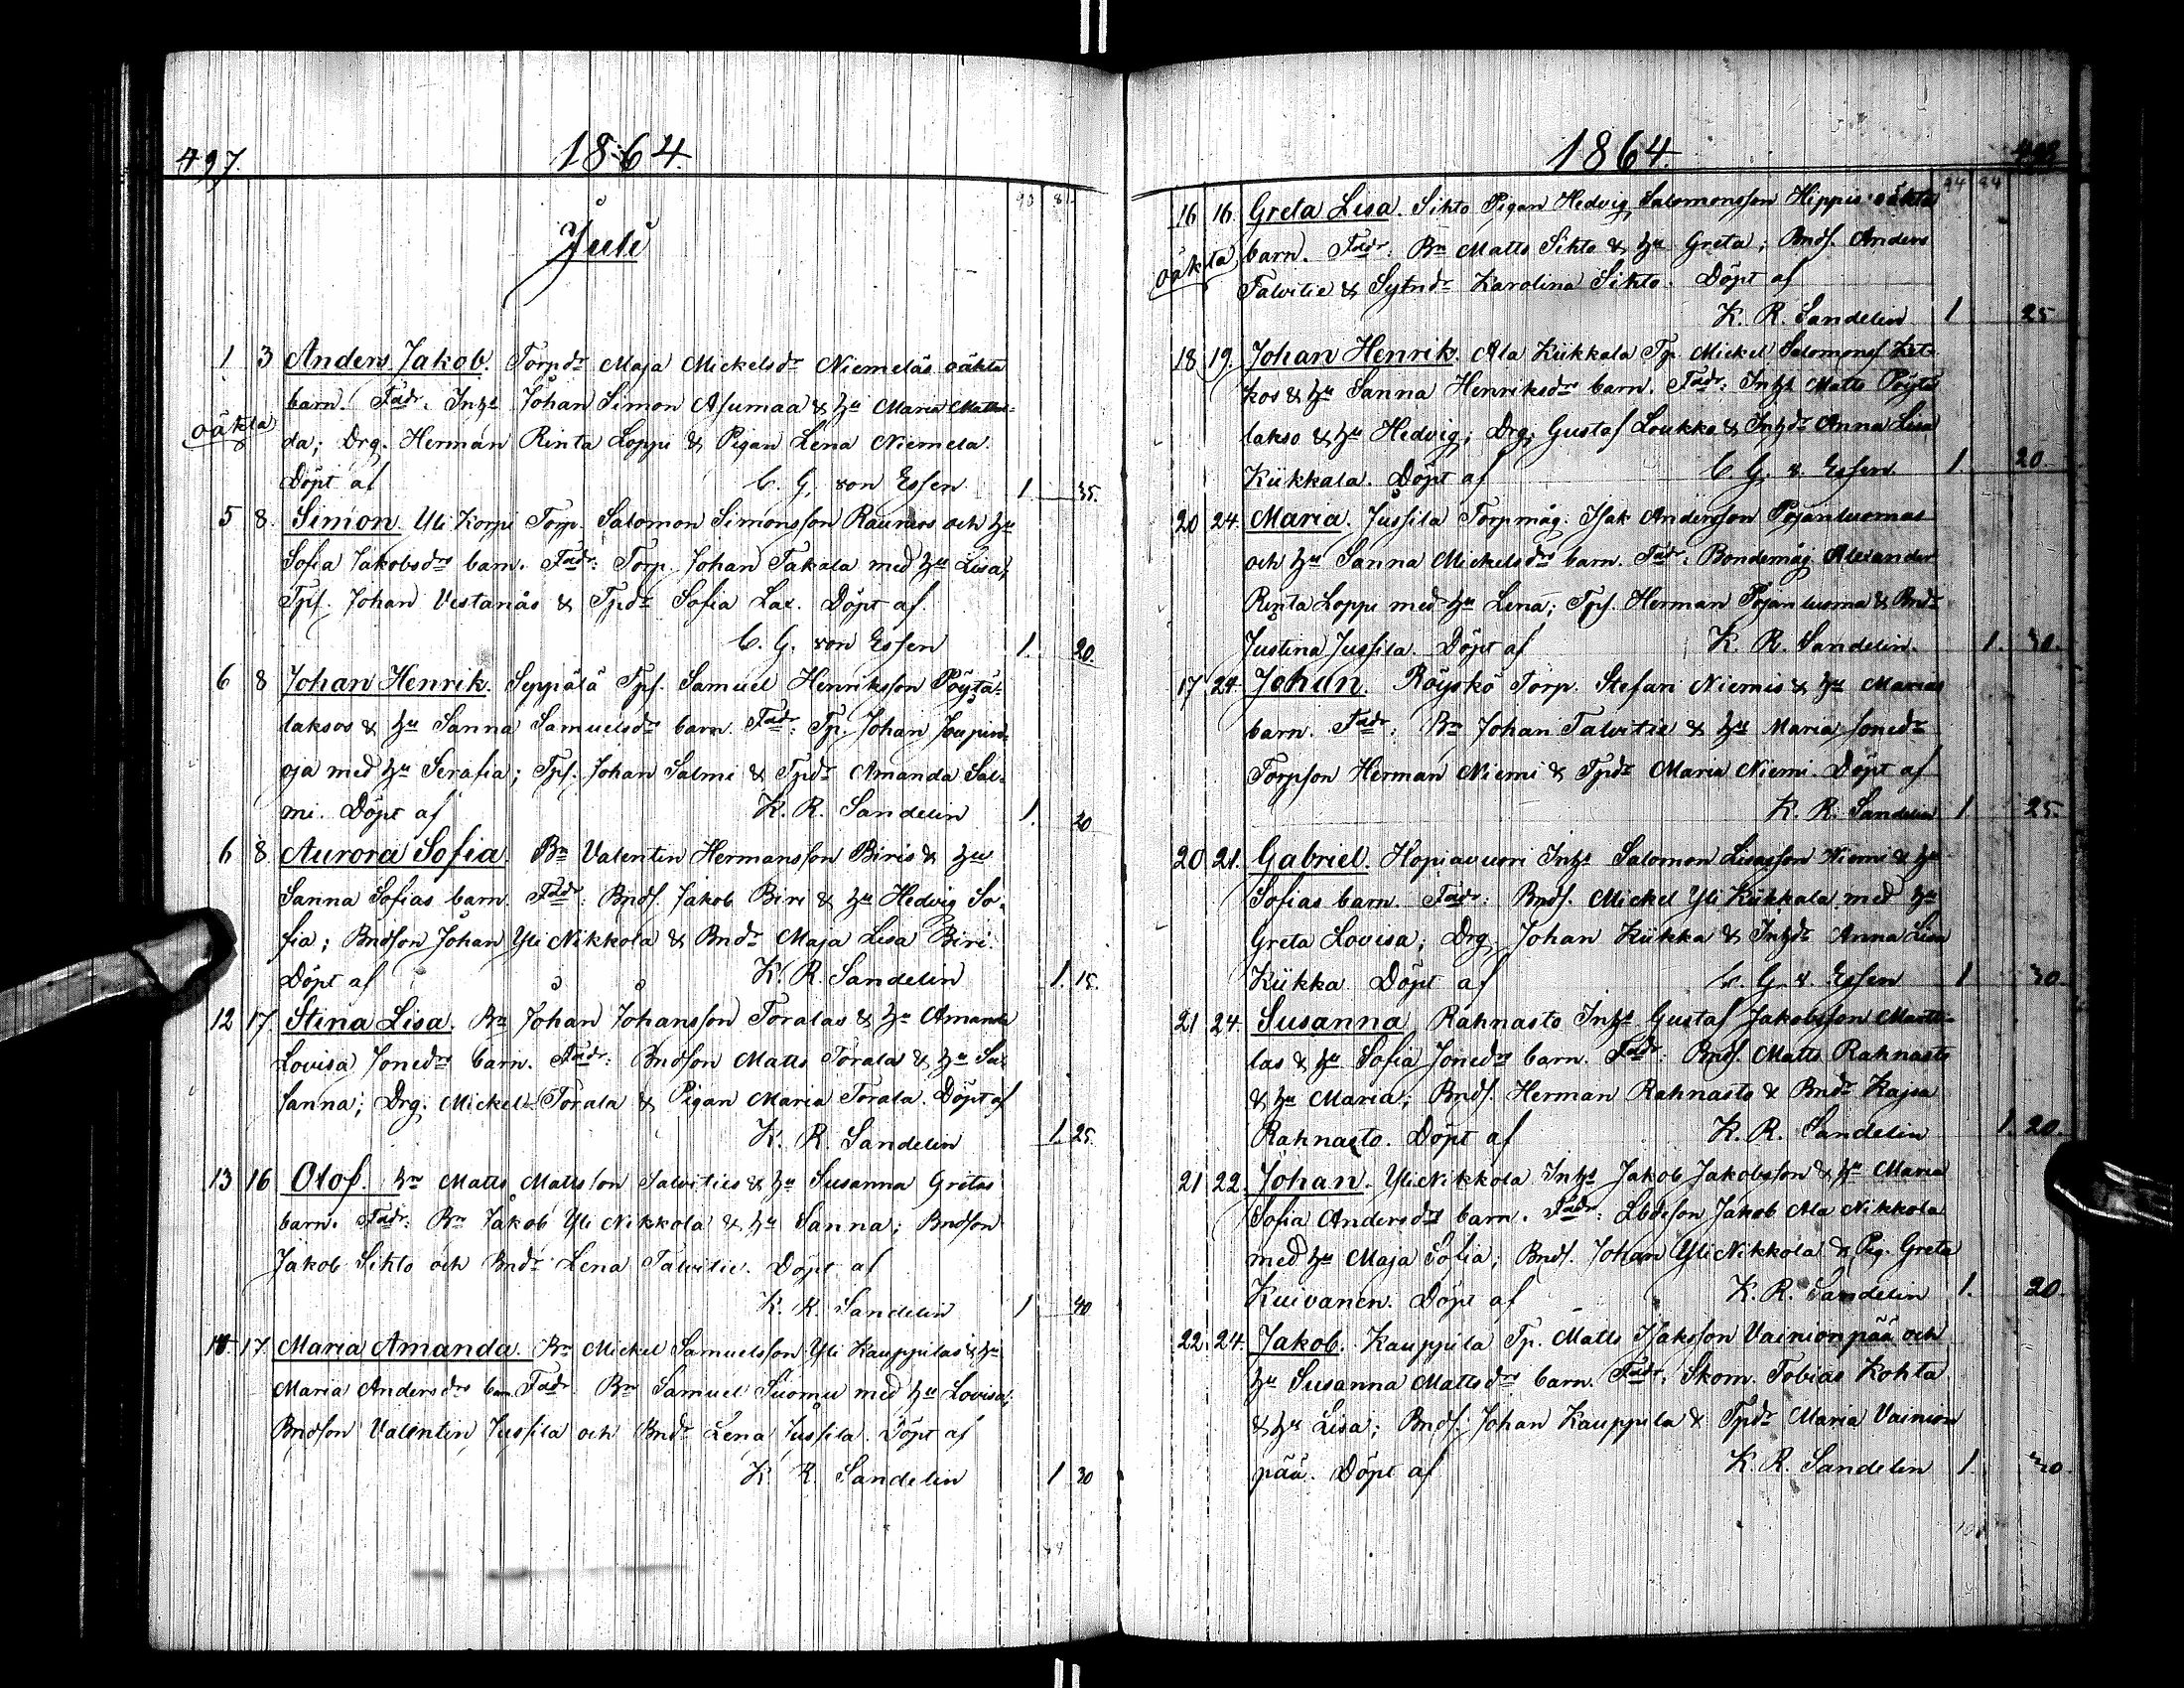 497.
1864.
90 81.
Juli
1 3 Anders Jakob. Torpdr Maja Mickelsdr Niemeläs oäkta
barn. Fadr. Inhs Johan Simon Asumaa & hu Maria Mathil=
oäkta
da; Drg. Herman Rinta Loppi & Pigan Lena Niemelä.
Döpt af C. G. von Essen 1 35.
5 8. Simon. Yli Korpi Torp. Salomon Simonsson Raunios och hu
Sofia Jakobsdrs barn. Fadr: Torp. Johan Takala med hu Lisa;
Tpf. Johan Vestanås & Tpdr Sofia Lax. Döpt af
C. G. von Essen 1. 20.
6 8 Johan Henrik. Seppälä Tpf. Samuel Henriksson Pöytä=
laksos & hu Sanna Samuelsdrs barn. Fadr: Tp. Johan Joupin=
oja med hu Serafia; Tpf. Johan Salmi & Tpdr Amanda Sal=
mi. Döpt af K. R. Sandelin 1. 20
6 8. Aurora Sofia. Bn Valentin Hermansson Biris & hu
Sanna Sofias barn. Fadr: Bndf. Jakob Biri & hu Hedvig So=
fia; Bndson Johan Yli Nikkola & Bndr Maja Lisa Biri.
Döpt af K. R. Sandelin 1. 15.
12 17. Stina Lisa. Bn Johan Johansson Toralas & hu Amanda
Lovisa Jonedrs barn. Fadr: Bndson Matts Torala & hu Su=
sanna; Drg. Mickel Torala & Pigan Maria Torala. Döpt af
K. R. Sandelin 1. 25.
13 16 Olof. Bn Matts Mattsson Talvities & hu Susanna Gretas
barn. Fadr: Bn Jakob Yli Nikkola & hu Sanna; Bndson
Jakob Sikto och Bndr Lena Talvitie. Döpt af
K. R. Sandelin 1 40
17. Maria Amanda. Bn Mickel Samuelsson Yli Kauppilas & hu
Maria Andersdrs barn. Fadr. Bn Samuel Suomu med hu Lovisa;
Bndson Valentin Jussila och Bndr Lena Jussila. Döpt af
K. R. Sandelin 1 30
1864.
94 84
16 16. Greta Lisa. Sikto Pigan Hedvig Salomonsson Hippis oäkta
barn. Fadr: Bn Matts Sikto & hu Greta; Bndf. Anders
oäkta
Talvitie & Sytndr Karolina Sikto. Döpt af
K. R. Sandelin 1 25
18 19. Johan Henrik. Ala Kiikkala Tp. Mickel Salomonsf Ket=
kos & hu Sanna Henriksdrs barn. Fadr: Inhs Matts Pöytä
lakso & hu Hedvig; Drg. Gustaf Loukko & Inhdr Anna Lisa
Kiikkala. Döpt af C. G. v. Essen 1. 20.
20 24. Maria. Jussila Torpmåg. Isak Andersson Pojanluomas
och hu Sanna Mickelsdrs barn. Fadr: Bondemåg Alexander
Rinta Loppi med hu Lena; Tpf. Herman Pojanluoma & Bndr
Justina Jussila. Döpt af K. R. Sandelin. 1. 30.
17 24 Johan. Röyskö Torp. Stefan Niemis & hu Marias
barn. Fadr: Bn Johan Talvitie & hu Maria Jonedr
Torpson Herman Niemi & Tpdr Maria Niemi. Döpt af
K. R. Sandelin 1 25.
20 21. Gabriel. Hopiavuori Inhs Salomon Lisasson Niemi & hu
Sofias barn. Fadr: Bndf. Mickel Yli Kiikkala med hu
Greta Lovisa; Drg. Johan Kiikka & Inhdr Anna Lisa
Kiikka. Döpt af C. G. v. Essen 1 30.
21 24. Susanna Rahnasto Inhs Gustaf Jakobsson Martti=
las & hu Sofia Jonedrs barn. Fadr: Bndf. Matts Rahnasto
& hu Maria; Bndf. Herman Rahnasto & Bndr Kajsa
Rahnasto. Döpt af K. R. Sandelin 1. 20.
21 22. Johan. Yli Nikkola Inhs Jakob Jakobsson & hu Maria
Sofia Andersdrs barn. Fadr: Lbdeson Jakob Ala Nikkola
med hu Maja Sofia; Bndf. Johan Yli Nikkola & Pig. Greta
Kuivanen. Döpt af K. R. Sandelin 1. 20.
22. 24. Jakob. Kauppila Tp. Matts Isaksson Vainionpää och
hu Susanna Mattsdrs barn. Fadr: Skom. Tobias Kohta
& hu Lisa; Bndf. Johan Kauppila & Tpdr Maria Vainion
pää. Döpt af K. R. Sandelin 1. 30.